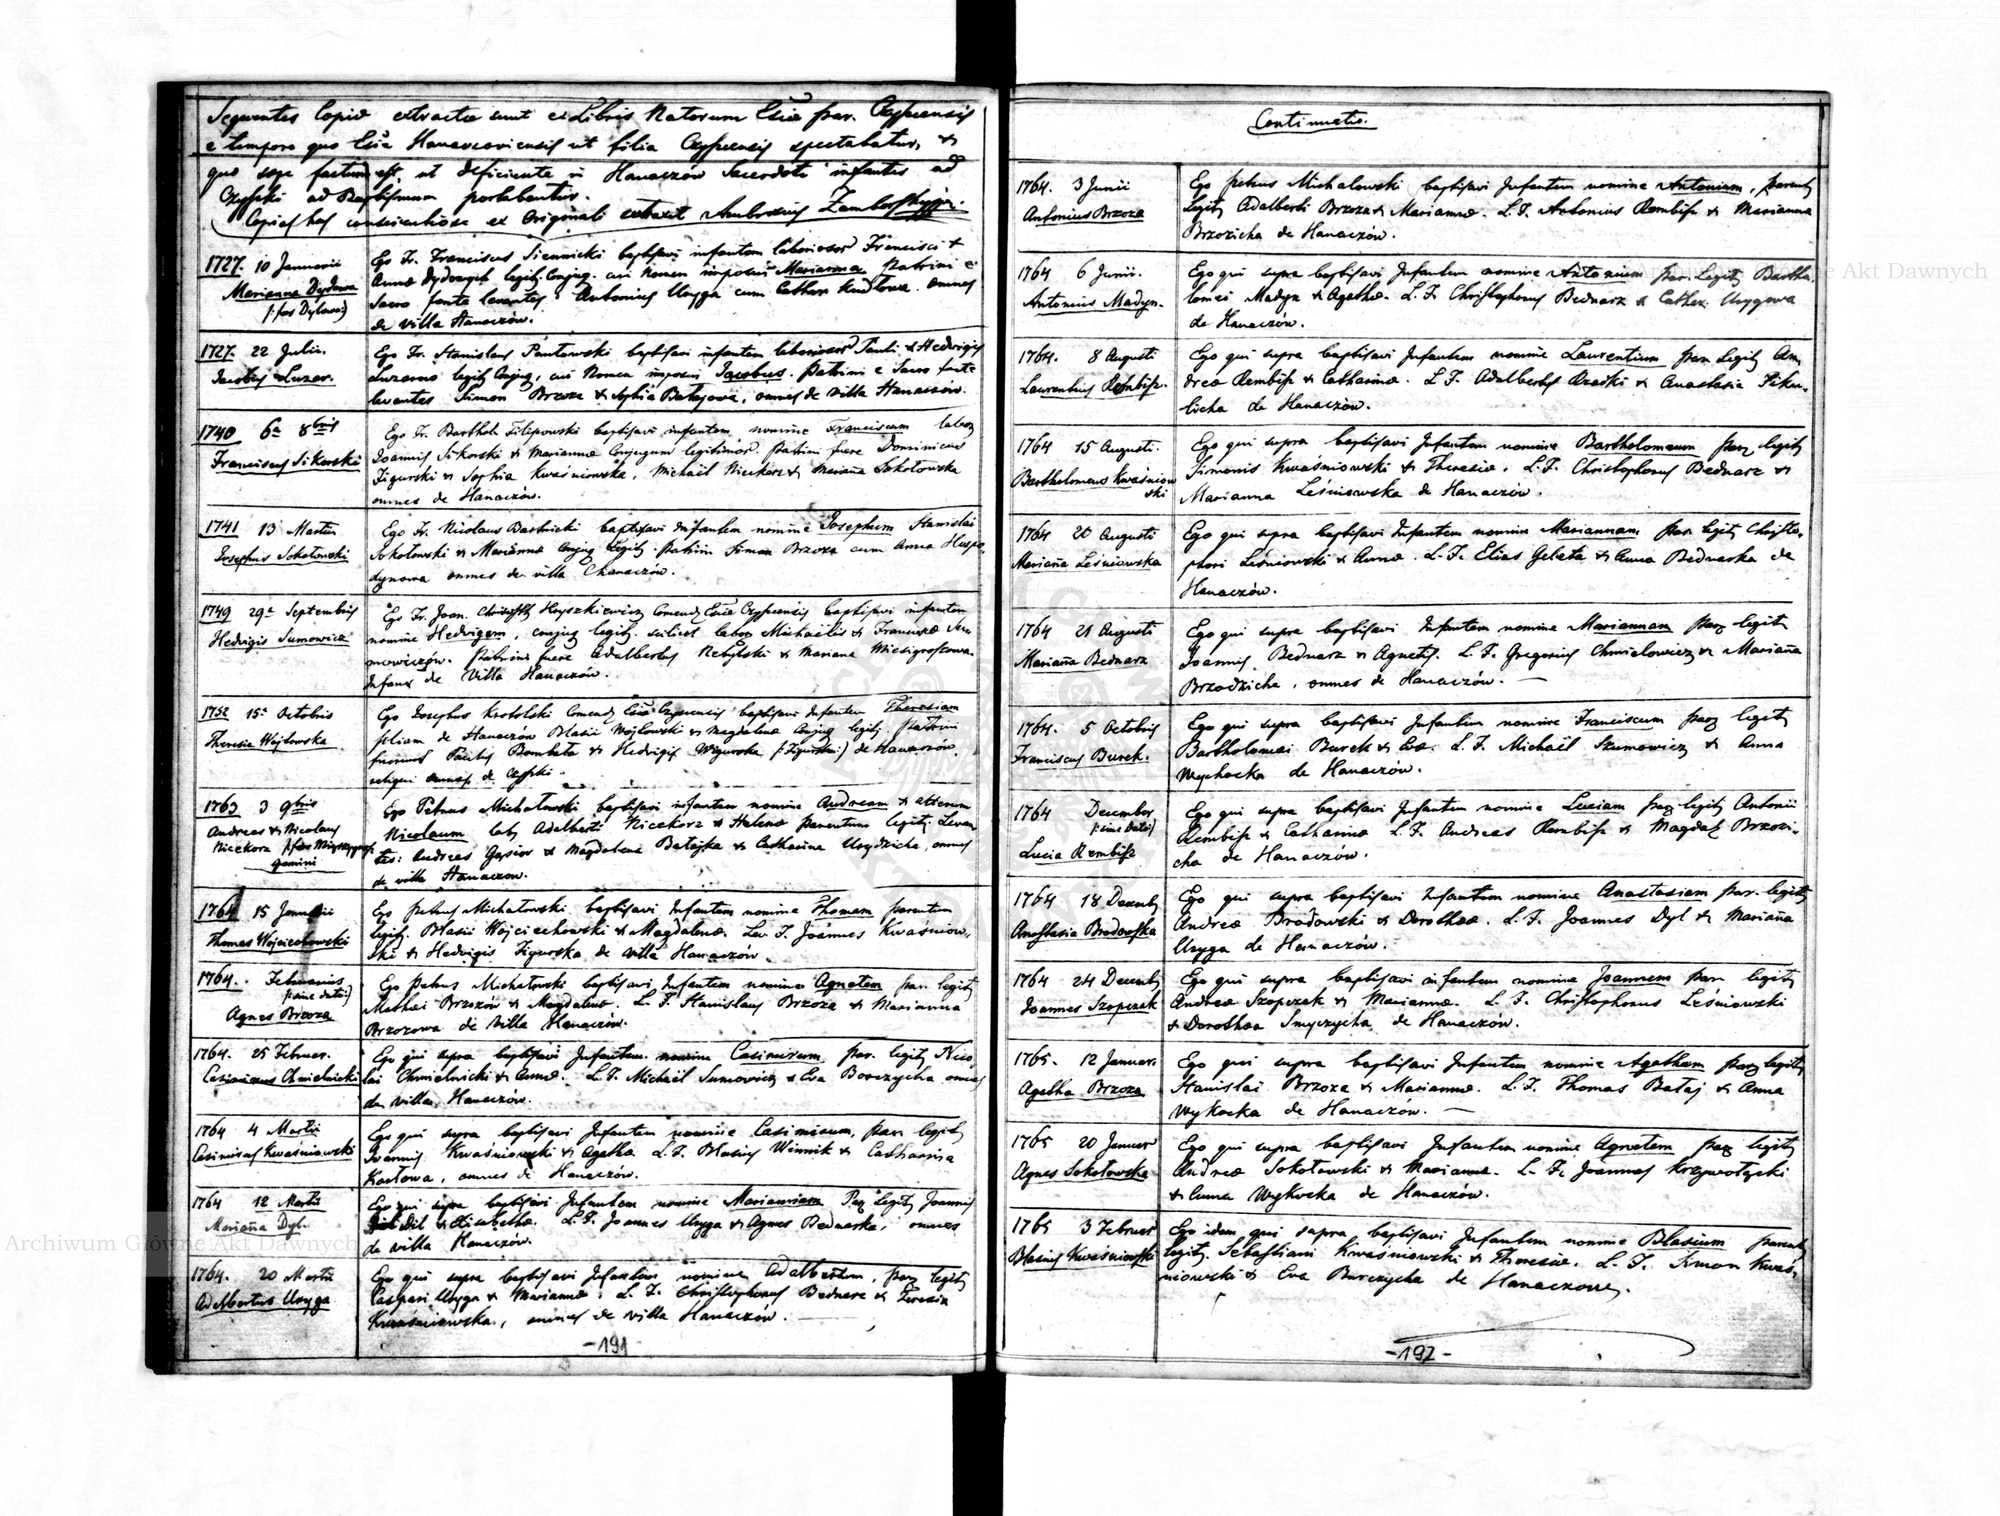 Sequentes Copiae extractae sunt ex Libris Natorum Eccliae par. Czyszcensis
e tempore quo Ecclia Hanaczoviensis ut filia Czyszcensis spectabatur, &
quo saepe factum est, ut deficiente in Hanaczów Sacerdote infantes ad
Czyszki ad Baptismum portabantur.
Copias has conscientiose ex Originali extraxit Ambrosius
1727. 10 Januarii
Marianna Dydowa
Ego Fr. Franciscus Siennicki baptisavi infantem laboriosor. Francisci &
Annae legit. Conjug. cui Nomen imposui Marianna. Patrini e
Sacro fonte levantes, Antonius Uryga cum Cathar. Kudlowa. omnes
de villa Hanaczów.
1727. 22 Julii.
Jacobus Luzar.
Ego Fr. Stanislaus Pantowski baptisavi infantem laboriosor. Pauli & Hedvigis
legit. Conjug. cui Nomen imposui Jacobus. Patrini e Sacro fonte
levantes Simon Brzoza & Sophia Batajowa, omnes de villa Hanaczów.
1740 6a 8bris
Franciscus Sikorski
Ego Fr. Barthol. Filipowski baptisavi infantem nomine Franciscum labor.
Joannis Sikorski & Mariannae Conjugum legitimor. Patrini fuere Dominicus
Figurski & Sophia Kwaśniowska, Michaël Nieckarz & Mariana Sokołowska
omnes de Hanaczów.
1741 13 Martii
Josephus Sokołowski
Ego Fr. Nicolaus baptisavi Infantem nomine Josephum Stanislai
Sokołowski & Mariannae Conjug. Legit. Patrini Simon Brzoza cum Anna
omnes de villa Chanaczów.
1749 29a Septembris
Hedvigis Sumowicz
Ego Fr. Joan. Comend. Eccliae Czyszcensis baptisavi infantem
nomine Hedvigem, conjug. legit. scilicet labor. Michaëlis & Franciscae Su
mowiczów. Patrini fuere Adalbertus Rebylski & Mariana
Infans de Villa Hanaczów.
1752 15a Octobris
Theresia Wojtowska
Ego Josephus Krobolski Comend. Eccliae Czyscensis baptisavi Infantem Theresiam
filiam de Hanaczów Blasii Wojtowski & Magdalenae Conjug. legit. Patrini
Paulus & Hedvigis (:Figurska:) de Hanaczów,
reliqui omnes de Czyszki.
1763 3 9bris
Andreas & Nicolaus
Nieckorz
gemini
Ego Petrus Michałowski baptisavi infantem nomine Andream & alterum
Nicolaum, lab. Adalberti Nieckorz & Helenae parentum legit. Levan
tes: Andreas Gąsior & Magdalena Batajka & Catharina omnes
de villa Hanaczów.
1764 15 Januarii
Thomas Wojciechowski
Ego Petrus Michałowski baptisavi Infantem nomine Thomam parentum
legit. Blasii Wojciechowski & Magdalenae. Lev. F. Joannes Kwaśniow
ski & Hedvigis Figurska de villa Hanaczów.
1764. Februarius
(:sine dato:)
Agnes Brzoza
Ego Petrus Michałowski baptisavi Infantem nomine Agnetem par. legit.
Mathei Brzozów & Magdalenae. L. F. Stanislaus Brzoza & Marianna
Brzozowa de villa Hanaczów.
1764. 25 Februar.
Casimirus Chmielnicki
Ego qui supra baptisavi Infantem nomine Casimirum par. legit. Nico
lai Chmielnicki & Annae. L. F. Michaël Sumowicz & Eva omnes
de villa Hanaczów.
1764 4 Martii
Casimirus Kwaśniowski
Ego qui supra baptisavi Infantem nomine Casimirum, par. legit.
Joannis Kwaśniowski & Agathae L. F. Blasius Winnik & Catharina
omnes de Hanaczów.
1764 12 Martii
Mariana Dyl.
Ego qui supra baptisavi Infantem nomine Mariannam Par. Legit. Joannis
Dil & Elisabethae. L. F. Joannes Uryga & Agnes Bednarska, omnes
de villa Hanaczów.
1764. 20 Martii
Adalbertus Uryga
Ego qui supra baptisavi Infantem nomine Adalbertum, par. legit.
Caspari Uryga & Mariannae. L. F. Christophorus Bednarz & Teresia
Kwaśniowska, omnes de villa Hanaczów.
-191-
Continuatio.
1764. 3 Junii
Antonius Brzoza
Ego Petrus Michałowski baptisavi Infantem nomine Antonium, parent.
legit. Adalberti Brzoza & Mariannae. L. F. Antonius Rembisz & Marianna
Brzozicha de Hanaczów.
1764 6 Junii.
Antonius Madyn.
Ego qui supra baptisavi Infantem nomine Antonium par. legit. Bartho
lomei Madyn & Agathae. L. F. Christophorus Bednarz & Cathar. Urygowa
de Hanaczów.
1764. 8 Augusti
Laurentius Rembisz.
Ego qui supra baptisavi Infantem nomine Laurentium par. legit. An
dreae Rembisz & Catharinae. L. F. Adalbertus Rzadki & Anastasia
de Hanaczów.
1764 15 Augusti.
Bartholomeus Kwaśniow
ski
Ego qui supra baptisavi Infantem nomine Bartholomeum par. legit.
Simonis Kwaśniowski & Theresiae. L. F. Christophorus Bednarz &
Marianna Leśniowska de Hanaczów.
1764 20 Augusti
Mariana Leśniowska
Ego qui supra baptisavi Infantem nomine Mariannam par. legit. Christo
phori Leśniowski & Annae. L. F. Elias Gelata & Anna Bednarska de
Hanaczów.
1764 21 Augusti
Mariana Bednarz
Ego qui supra baptisavi Infantem nomine Mariannam par. legit.
Joannis Bednarz & Agnetis. L. F. Gregorius Chmielowicz & Mariana
Brzodzicha, omnes de Hanaczów. —
1764. 5 Octobris
Franciscus Burek.
Ego qui supra baptisavi Infantem nomine Franciscum par. legit.
Bartholomei Burek & Evae. L. F. Michaël Szumowicz & Anna
de Hanaczów.
1764 December
(:sine dato:)
Lucia Rembisz
Ego qui supra baptisavi Infantem nomine Luciam par. legit. Antonii
Rembisz & Catharinae L. F. Andreas Rembisz & Magdal. Brzozi
cha de Hanaczów.
1764 18 Decemb.
Anastasia Brodowska
Ego qui supra baptisavi Infantem nomine Anastasiam par. legit.
Andreae Brodowski & Dorotheae. L. F. Joannes Dyl & Mariana
Uryga de Hanaczów.
1764 24 Decemb.
Joannes Szopczak
Ego qui supra baptisavi infantem nomine Joannem par. legit.
Andreae Szopczak & Mariannae. L. F. Christophorus Leśniowski
& Dorothea Smyczycha, de Hanaczów.
1765. 12 Januar.
Agatha Brzoza
Ego qui supra baptisavi Infantem nomine Agatham par. legit.
Stanislai Brzoza & Mariannae. L. F. Thomas Bataj & Anna
Wykocka de Hanaczów. —
1765 20 Januar
Agnes Sokołowska
Ego qui supra baptisavi Infantem nomine Agnetem par. legit.
Andreae Sokołowski & Mariannae. L. F. Joannes Krzywołycki
& Anna Wykocka de Hanaczów.
1765 3 Februar
Blasius Kwaśniowski
Ego idem qui supra baptisavi Infantem nomine Blasium parent.
legit. Sebastiani Kwaśniowski & Theresiae. L. F. Simon Kwaś
niowski & Eva Burczycha de Hanaczów.
-192-
Archiwum Główne Akt Dawnych
Archiwum Główne Akt Dawnych